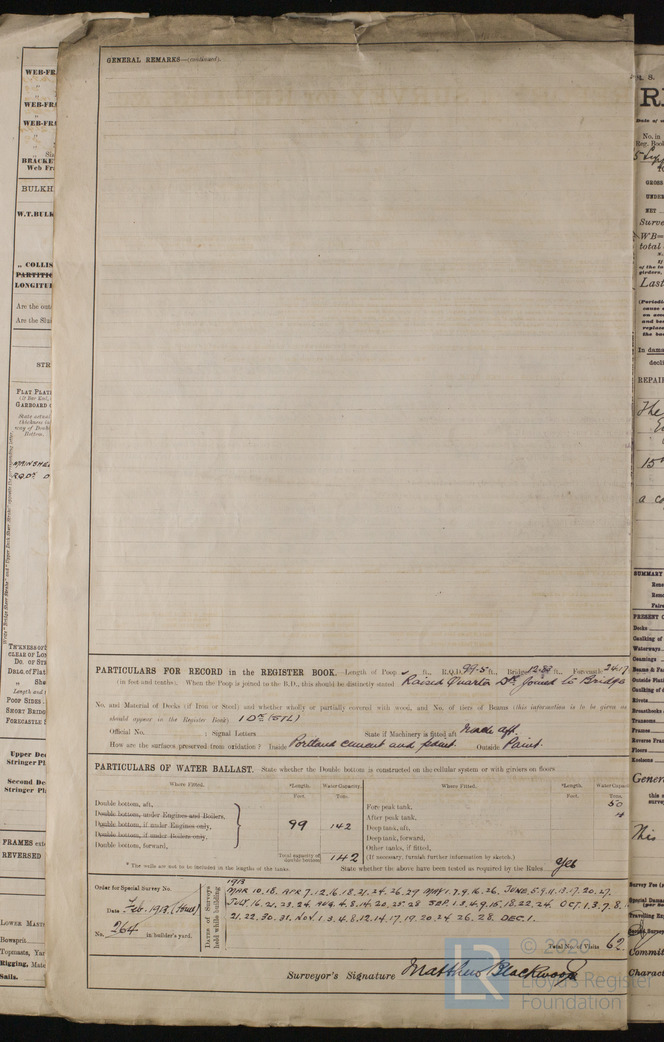 GENERAL REMARKS—(continued).
PARTICULARS FOR RECORD in the REGISTER BOOK. Length of Poop ft., R.Q.D. 99·5 ft., Bridge ft., Forecastle 24·17
(in feet and tenths). When the Poop is joined to the B.D., this should be distinctly stated Raised Quarter Dk. joined to Bridge
No. and Material of Decks (if Iron or Steel) and whether wholly or partially covered with wood, and No. of tiers of Beams (this information is to be given as
should appear in the Register Book) 1 Dk (STL)
Official No. ; Signal Letters State if Machinery is fitted aft Made aft.
How are the surfaces preserved from oxidation? Inside Portland cement and paint. Outside Paint.
PARTICULARS OF WATER BALLAST. State whether the Double bottom is constructed on the cellular system or with girders on floors
Where Fitted. *Length. Water Capacity. Where Fitted. *Length. Water Capacity
Feet. Tons. Feet. Tons.
Double bottom, aft, Fore peak tank, 50
Double bottom, under Engines and Boilers, After peak tank,
Double bottom, if under Engines only, 99 142 Deep tank, aft,
Double bottom, if under Boilers only, Deep tank, forward,
Double bottom, forward, Other tanks, if fitted,
Total capacity of double bottom 142 (If necessary, furnish further information by sketch.)
* The wells are not to be included in the lengths of the tanks. State whether the above have been tested as required by the Rules Yes
Order for Special Survey No.
Date Feb. 1913
No. 264 in builder's yard.
Dates of Surveys held while building
1913
MAR 10. 18. APR 7. 12. 16. 18. 21. 24. 26. 29 MAY 1. 7. 9. 16. 26. JUNE 5. 9. 11. 13. 17. 20. 27.
JULY. 16. 21. 23. 24. AUG. 4. 8. 14. 20. 25. 28 SEP. 1. 3. 4. 9. 15. 18. 22. 24. OCT. 1. 3. 7. 8.
21. 22. 30. 31. NOV. 1. 3. 4. 8. 12. 14. 17. 19. 20. 24. 26. 28. DEC. 1.
Total No. of Visits 62
Surveyor's Signature Matthew Blackwood
© 2020
Lloyd's Register
Foundation
LR